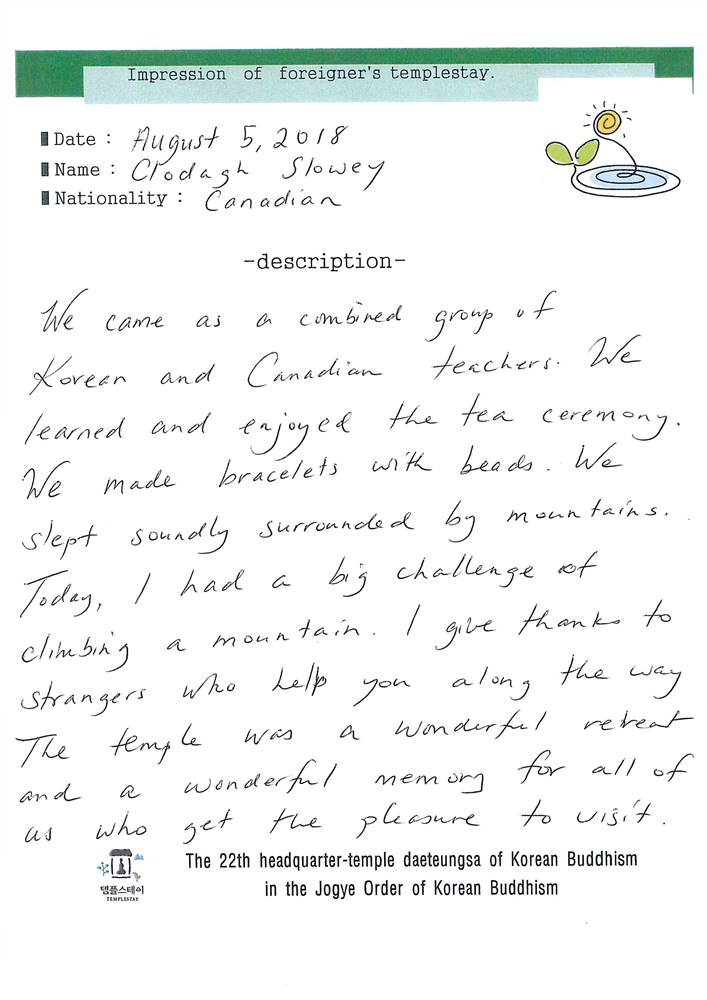 Impression of foreigner's templestay.
Date : August 5, 2018
Name : Clodagh Slowey
Nationality : Canadian
-description-
We came as a combined group of
Korean and Canadian teachers. We
learned and enjoyed the tea ceremony.
We made bracelets with beads. We
slept soundly surrounded by mountains.
Today, I had a big challenge of
climbing a mountain. I give thanks to
strangers who help you along the way
The temple was a wonderful retreat
and a wonderful memory for all of
us who get the pleasure to visit.
The 22th headquarter-temple daeteungsa of Korean Buddhism
in the Jogye Order of Korean Buddhism
템플스테이
TEMPLESTAY